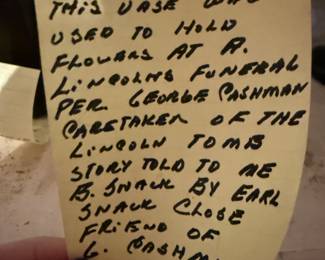 THIS VASE WAS
USED TO HOLD
FLOWERS AT A.
LINCOLNS FUNERAL
PER GEORGE CASHMAN
CARETAKER OF THE
LINCOLN TOMB
STORY TOLD TO ME
B. SNACK BY EARL
SNACK CLOSE
FRIEND OF
G. CASHMA